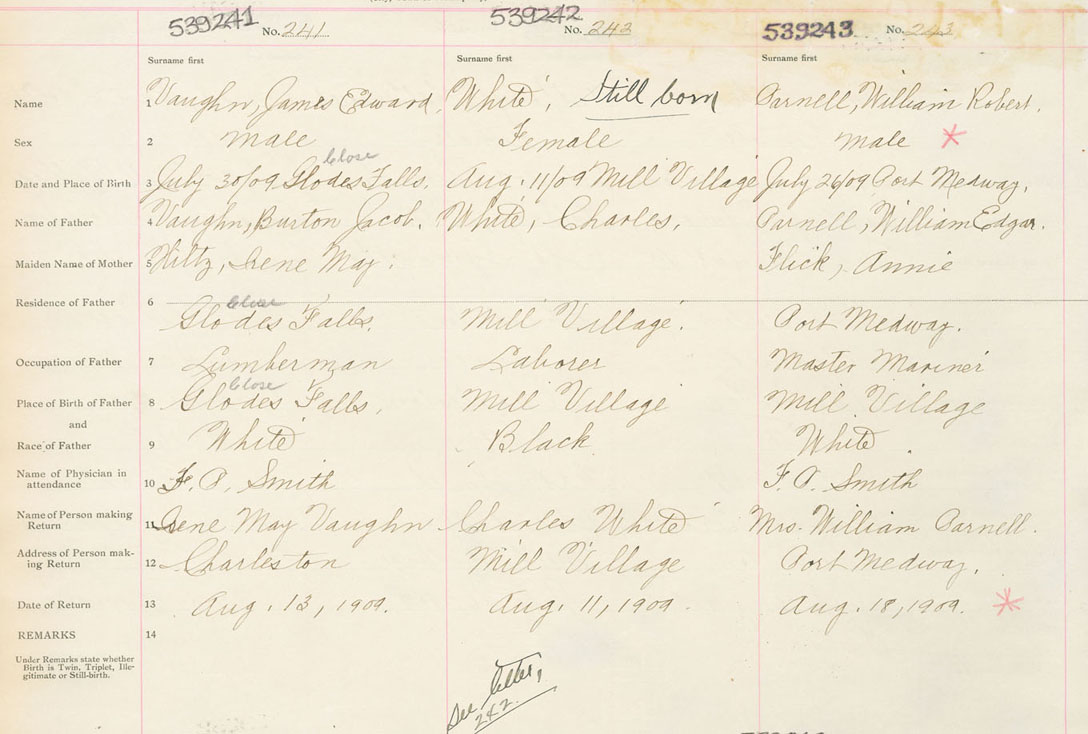 539241 No. 241 539242 No. 242 539243 No. 243
Surname first Surname first Surname first
Name 1 Vaughn, James Edward. White, Still born Parnell, William Robert.
Sex 2 Male Female Male *
Close
Date and Place of Birth 3 July 30/09 Glodes Falls. Aug. 11/09 Mill Village July 26/09 Port Medway.
Name of Father 4 Vaughn, Burton Jacob. White, Charles, Parnell, William Edgar.
Maiden Name of Mother 5 Wiltz, Irene May. Flick, Annie
Residence of Father 6 Close
Glodes Falls. Mill Village. Port Medway.
Occupation of Father 7 Lumberman Laborer Master Mariner
Close
Place of Birth of Father 8 Glodes Falls, Mill Village Mill Village
and
Race of Father 9 White Black White
Name of Physician in
attendance 10 F. P. Smith F. P. Smith
Name of Person making
Return 11 Irene May Vaughn Charles White Mrs. William Parnell.
Address of Person mak-
ing Return 12 Charleston Mill Village Port Medway.
Date of Return 13 Aug. 13, 1909. Aug. 11, 1909. Aug. 18, 1909. *
REMARKS 14
Under Remarks state whether
Birth is Twin, Triplet, Ille-
gitimate or Still-birth.
See letter,
242